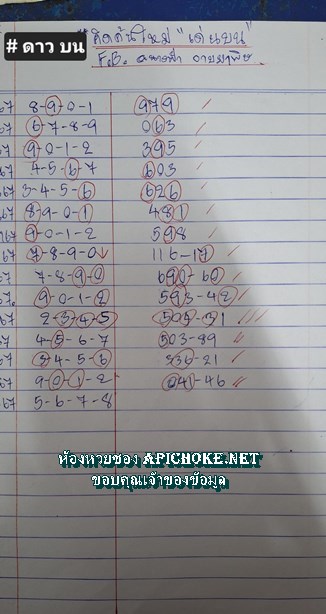 # ดาว บน
"คิดค้นใหม่ "เด่นบน"
F.B.
67 8-9-0-1 979
67 6-7-8-9 063
67 9-0-1-2 395
67 4-5-6-7 603
67 3-4-5-6 626
67 8-9-0-1 481
67 9-0-1-2 598
67 7-8-9-0 116-17
67 7-8-9-0 690-60
67 9-0-1-2 593-42
67 2-3-4-5 -31
67 4-5-6-7 503-89
67 3-4-5-6 -21
67 9-0-1-2 041-46
67 5-6-7-8
ห้องหวยของ APICHOKE.NET
ขอบคุณเจ้าของข้อมูล